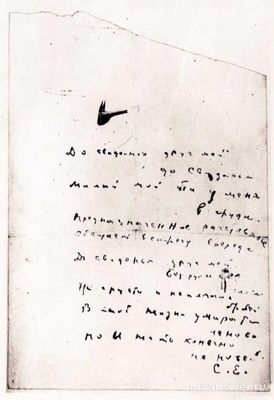 До свиданья друг мой
до свиданья
милый мой ты у меня
в груди.
Предназначенное расставанье
Обещает встречу впереди
До свиданья друг мой
без руки
Не грусти и не
бровей
В этой жизни умирать
не ново
но и жить конечно
не новей.
С.Е.
myanswer.ru